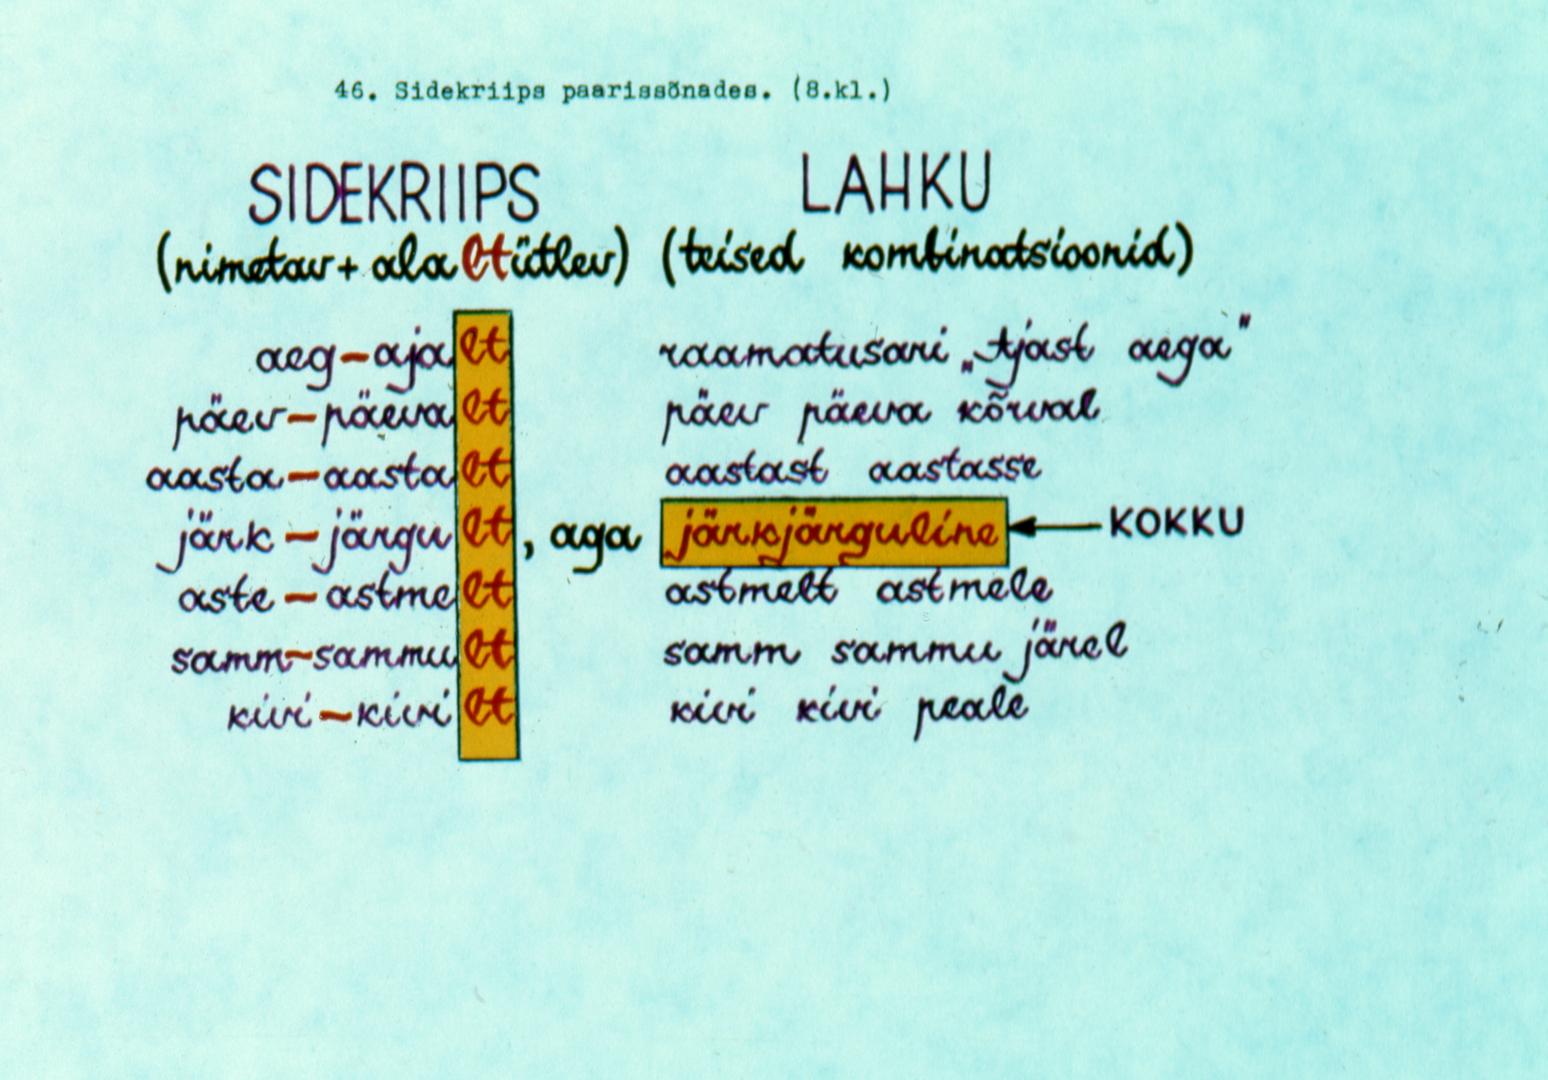 46. Sidekriips paarissõnades. (8.kl.)
SIDEKRIIPS LAHKU
(nimetav + alaltütlev) (teised kombinatsioonid)
aeg – ajalt raamatusari „Ajast aega"
päev – päevalt päev päeva kõrval
aasta – aastalt aastast aastasse
järk – järgult, aga järkjärguline ← KOKKU
aste – astmelt astmelt astmele
samm – sammult samm sammu järel
kivi – kivilt kivi kivi peale